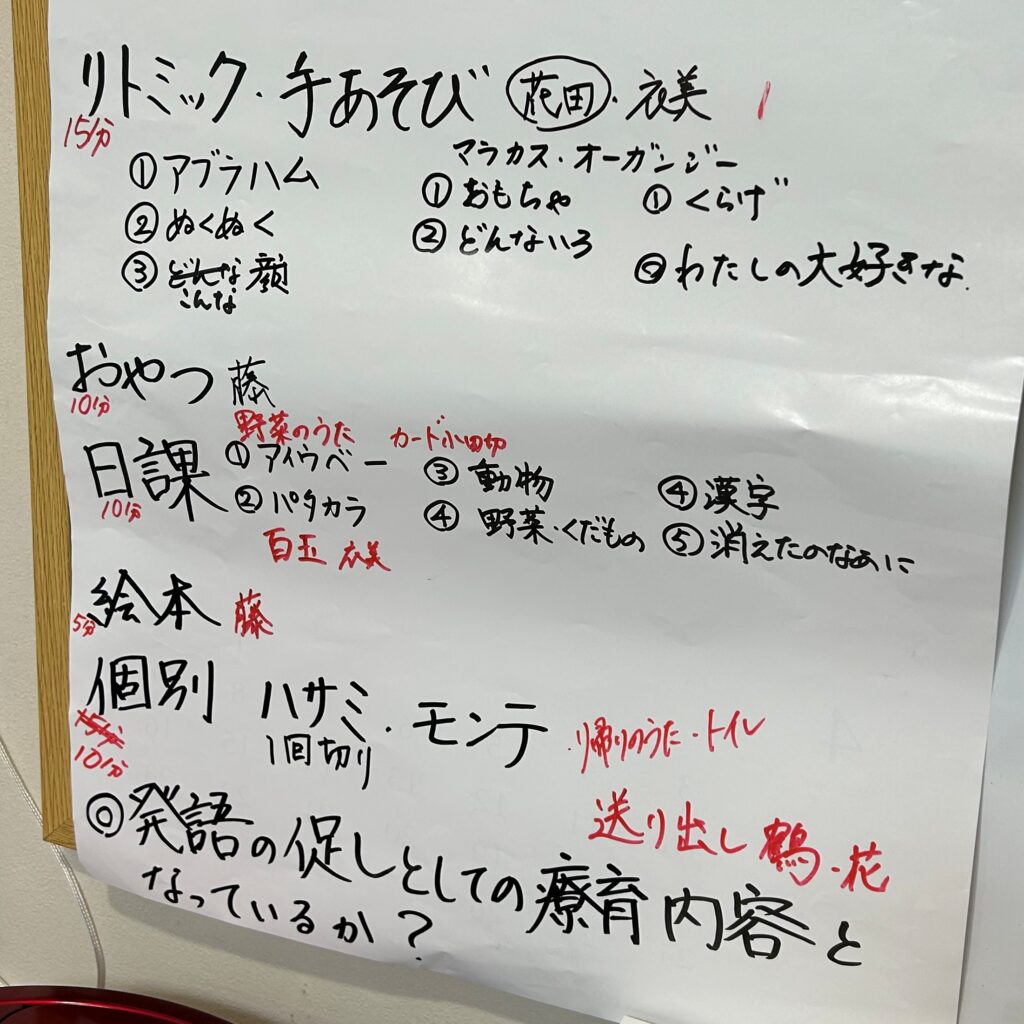 リトミック・手あそび 花田・衣美
15分
マラカス・オーガンジー
①アブラハム ①おもちゃ ①くらげ
②ぬくぬく ②どんないろ ②わたしの大好きな
③どんな顔
こんな
おやつ 藤
10分
野菜のうた カード小田切
日課 ①アイウベー ③動物 ④漢字
10分 ②パタカラ ④野菜・くだもの ⑤消えたのなあに
白玉 衣美
絵本 藤
5分
個別 ハサミ・モンテ ・帰りのうた・トイレ
15分 1回切り
10分
送り出し 鶴・花
◎発語の促しとしての療育内容と
なっているか?